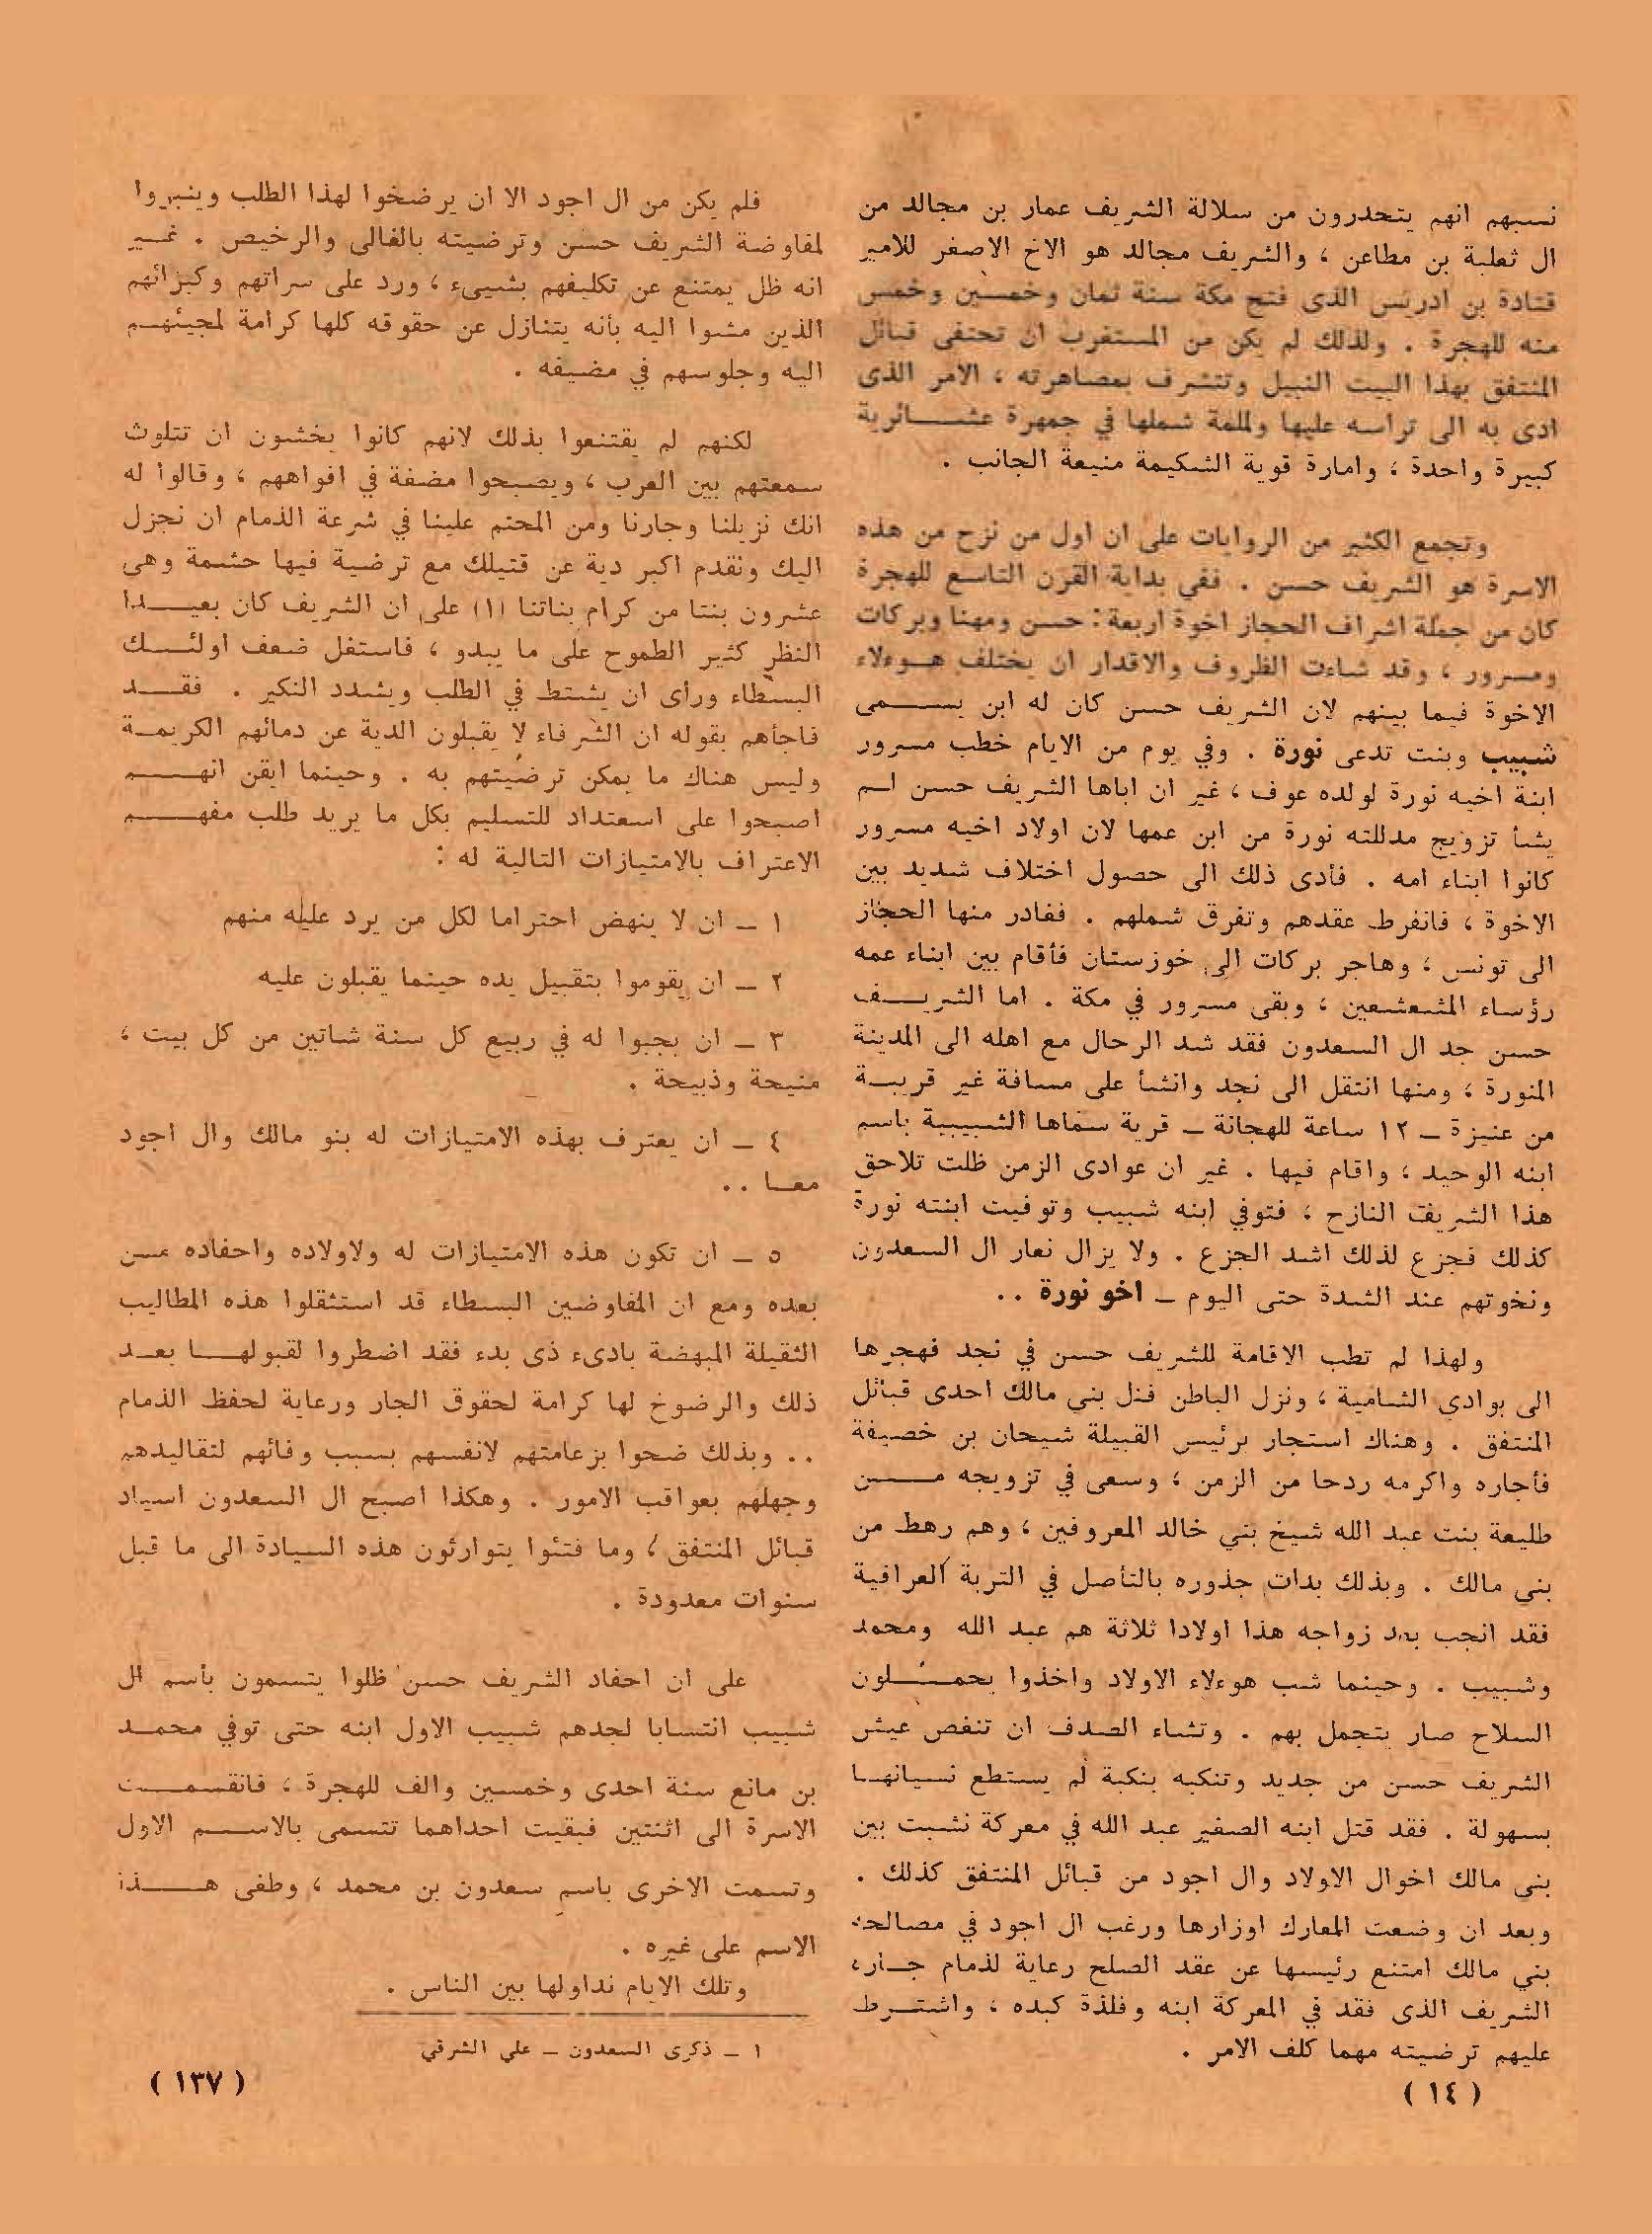 نسبهم انهم يتحدرون من سلالة الشريف عمار بن مجالد من
ال ثعلبة بن مطاعن ، والشريف مجالد هو الاخ الاصغر للامير
قتادة بن ادريس الذى فتح مكة سنة ثمان وخمسين وخمس
مئه للهجرة . ولذلك لم يكن من المستغرب ان تحتفى قبائل
المنتفق بهذا البيت النبيل وتتشرف بمصاهرته ، الامر الذى
ادى به الى تراسه عليها ولملمة شملها في جمهرة عشــائرية
كبيرة واحدة ، وامارة قوية الشكيمة منيعة الجانب .
وتجمع الكثير من الروايات على ان اول من نزح من هذه
الاسرة هو الشريف حسن . ففي بداية القرن التاسع للهجرة
كان من جملة اشراف الحجاز اخوة اربعة: حسن ومهنا وبركات
ومسرور ، وقد شاءت الظروف والاقدار ان يختلف هـوءلاء
الاخوة فيما بينهم لان الشريف حسن كان له ابن يســمى
شبيب وبنت تدعى نورة . وفي يوم من الايام خطب مسرور
ابنة اخيه نورة لولده عوف ، غير ان اباها الشريف حسن لـم
يشأ تزويج مدللته نورة من ابن عمها لان اولاد اخيه مسرور
كانوا ابناء امه . فأدى ذلك الى حصول اختلاف شديد بين
الاخوة ، فانفرط عقدهم وتفرق شملهم . فغادر منها الحجاز
الى تونس ، وهاجر بركات الى خوزستان فأقام بين ابناء عمه
رؤساء المشعشعين ، وبقى مسرور في مكة . اما الشريــف
حسن جد ال السعدون فقد شد الرحال مع اهله الى المدينة
المنورة ، ومنها انتقل الى نجد وانشأ على مسافة غير قريبـة
من عنيزة ــ ١٢ ساعة للهجانة ــ قرية سماها الشبيبية باسم
ابنه الوحيد ، واقام فيها . غير ان عوادى الزمن ظلت تلاحق
هذا الشريف النازح ، فتوفي ابنه شبيب وتوفيت ابنته نورة
كذلك فجزع لذلك اشد الجزع . ولا يزال نعار ال السعدون
ونخوتهم عند الشدة حتى اليوم ــ اخو نورة ..
ولهذا لم تطب الاقامة للشريف حسن في نجد فهجرها
الى بوادى الشامية ، ونزل الباطن فنل بني مالك احدى قبائل
المنتفق . وهناك استجار برئيس القبيلة شيحان بن خصيفة
فأجاره واكرمه ردحا من الزمن ، وسعى في تزويجه مــن
طليعة بنت عبد الله شيخ بني خالد المعروفين ، وهم رهط من
بنى مالك . وبذلك بدات جذوره بالتأصل في التربة العراقية
فقد انجب بعد زواجه هذا اولادا ثلاثة هم عبد الله ومحمد
وشبيب . وحينما شب هوءلاء الاولاد واخذوا يحمــلون
السلاح صار يتجمل بهم . وتشاء الصدف ان تنغص عيش
الشريف حسن من جديد وتنكبه بنكبة لم يستطع نسيانهـا
بسهولة . فقد قتل ابنه الصغير عبد الله في معركة نشبت بين
بنى مالك اخوال الاولاد وال اجود من قبائل المنتفق كذلك .
وبعد ان وضعت المعارك اوزارها ورغب ال اجود في مصالحة
بني مالك امتنع رئيسها عن عقد الصلح رعاية لذمام جـاره
الشريف الذى فقد في المعركة ابنه وفلذة كبده ، واشتـرط
عليهم ترضيته مهما كلف الامر .
( ١٤ )
فلم يكن من ال اجود الا ان يرضخوا لهذا الطلب وينبروا
لمفاوضة الشريف حسن وترضيته بالغالى والرخيص . غـير
انه ظل يمتنع عن تكليفهم بشيىء ، ورد على سراتهم وكبرائهم
الذين مشوا اليه بأنه يتنازل عن حقوقه كلها كرامة لمجيئهـم
اليه وجلوسهم في مضيفه .
لكنهم لم يقتنعوا بذلك لانهم كانوا يخشون ان تتلوث
سمعتهم بين العرب ، ويصبحوا مضغة في افواههم ، وقالوا له
انك نزيلنا وجارنا ومن المحتم علينا في شرعة الذمام ان نجزل
اليك ونقدم اكبر دية عن قتيلك مع ترضية فيها حشمة وهى
عشرون بنتا من كرام بناتنا (١) على ان الشريف كان بعيــدا
النظر كثير الطموح على ما يبدو ، فاستغل ضعف اولئـــك
البسطاء ورأى ان يشتط في الطلب ويشدد النكير . فقــد
فاجأهم بقوله ان الشرفاء لا يقبلون الدية عن دمائهم الكريمـة
وليس هناك ما يمكن ترضيتهم به . وحينما ايقن انهــم
اصبحوا على استعداد للتسليم بكل ما يريد طلب مفهــم
الاعتراف بالامتيازات التالية له :
١ ــ ان لا ينهض احتراما لكل من يرد عليه منهم
٢ ــ ان يقوموا بتقبيل يده حينما يقبلون عليه
٣ ــ ان يجبوا له في ربيع كل سنة شاتين من كل بيت ،
منيحة وذبيحة .
٤ ــ ان يعترف بهذه الامتيازات له بنو مالك وال اجود
معـا ..
٥ ــ ان تكون هذه الامتيازات له ولاولاده واحفاده مـن
بعده ومع ان المفاوضين البسطاء قد استثقلوا هذه المطاليب
الثقيلة المبهضة بادىء ذى بدء فقد اضطروا لقبولهـا بعـد
ذلك والرضوخ لها كرامة لحقوق الجار ورعاية لحفظ الذمام
.. وبذلك ضحوا بزعامتهم لانفسهم بسبب وفائهم لتقاليدهم
وجهلهم بعواقب الامور . وهكذا اصبح ال السعدون اسياد
قبائل المنتفق ، وما فتئوا يتوارثون هذه السيادة الى ما قبل
سنوات معدودة .
على ان احفاد الشريف حسن ظلوا يتسمون بأسم ال
شبيب انتسابا لجدهم شبيب الاول ابنه حتى توفي محمـد
بن مانع سنة احدى وخمسين والف للهجرة ، فانقسمــت
الاسرة الى اثنتين فبقيت احداهما تتسمى بالاســم الاول
وتسمت الاخرى باسم سعدون بن محمد ، وطغى هــذا
الاسم على غيره .
وتلك الايام نداولها بين الناس .
١ ــ ذكرى السعدون ــ علي الشرقي
( ١٣٧ )